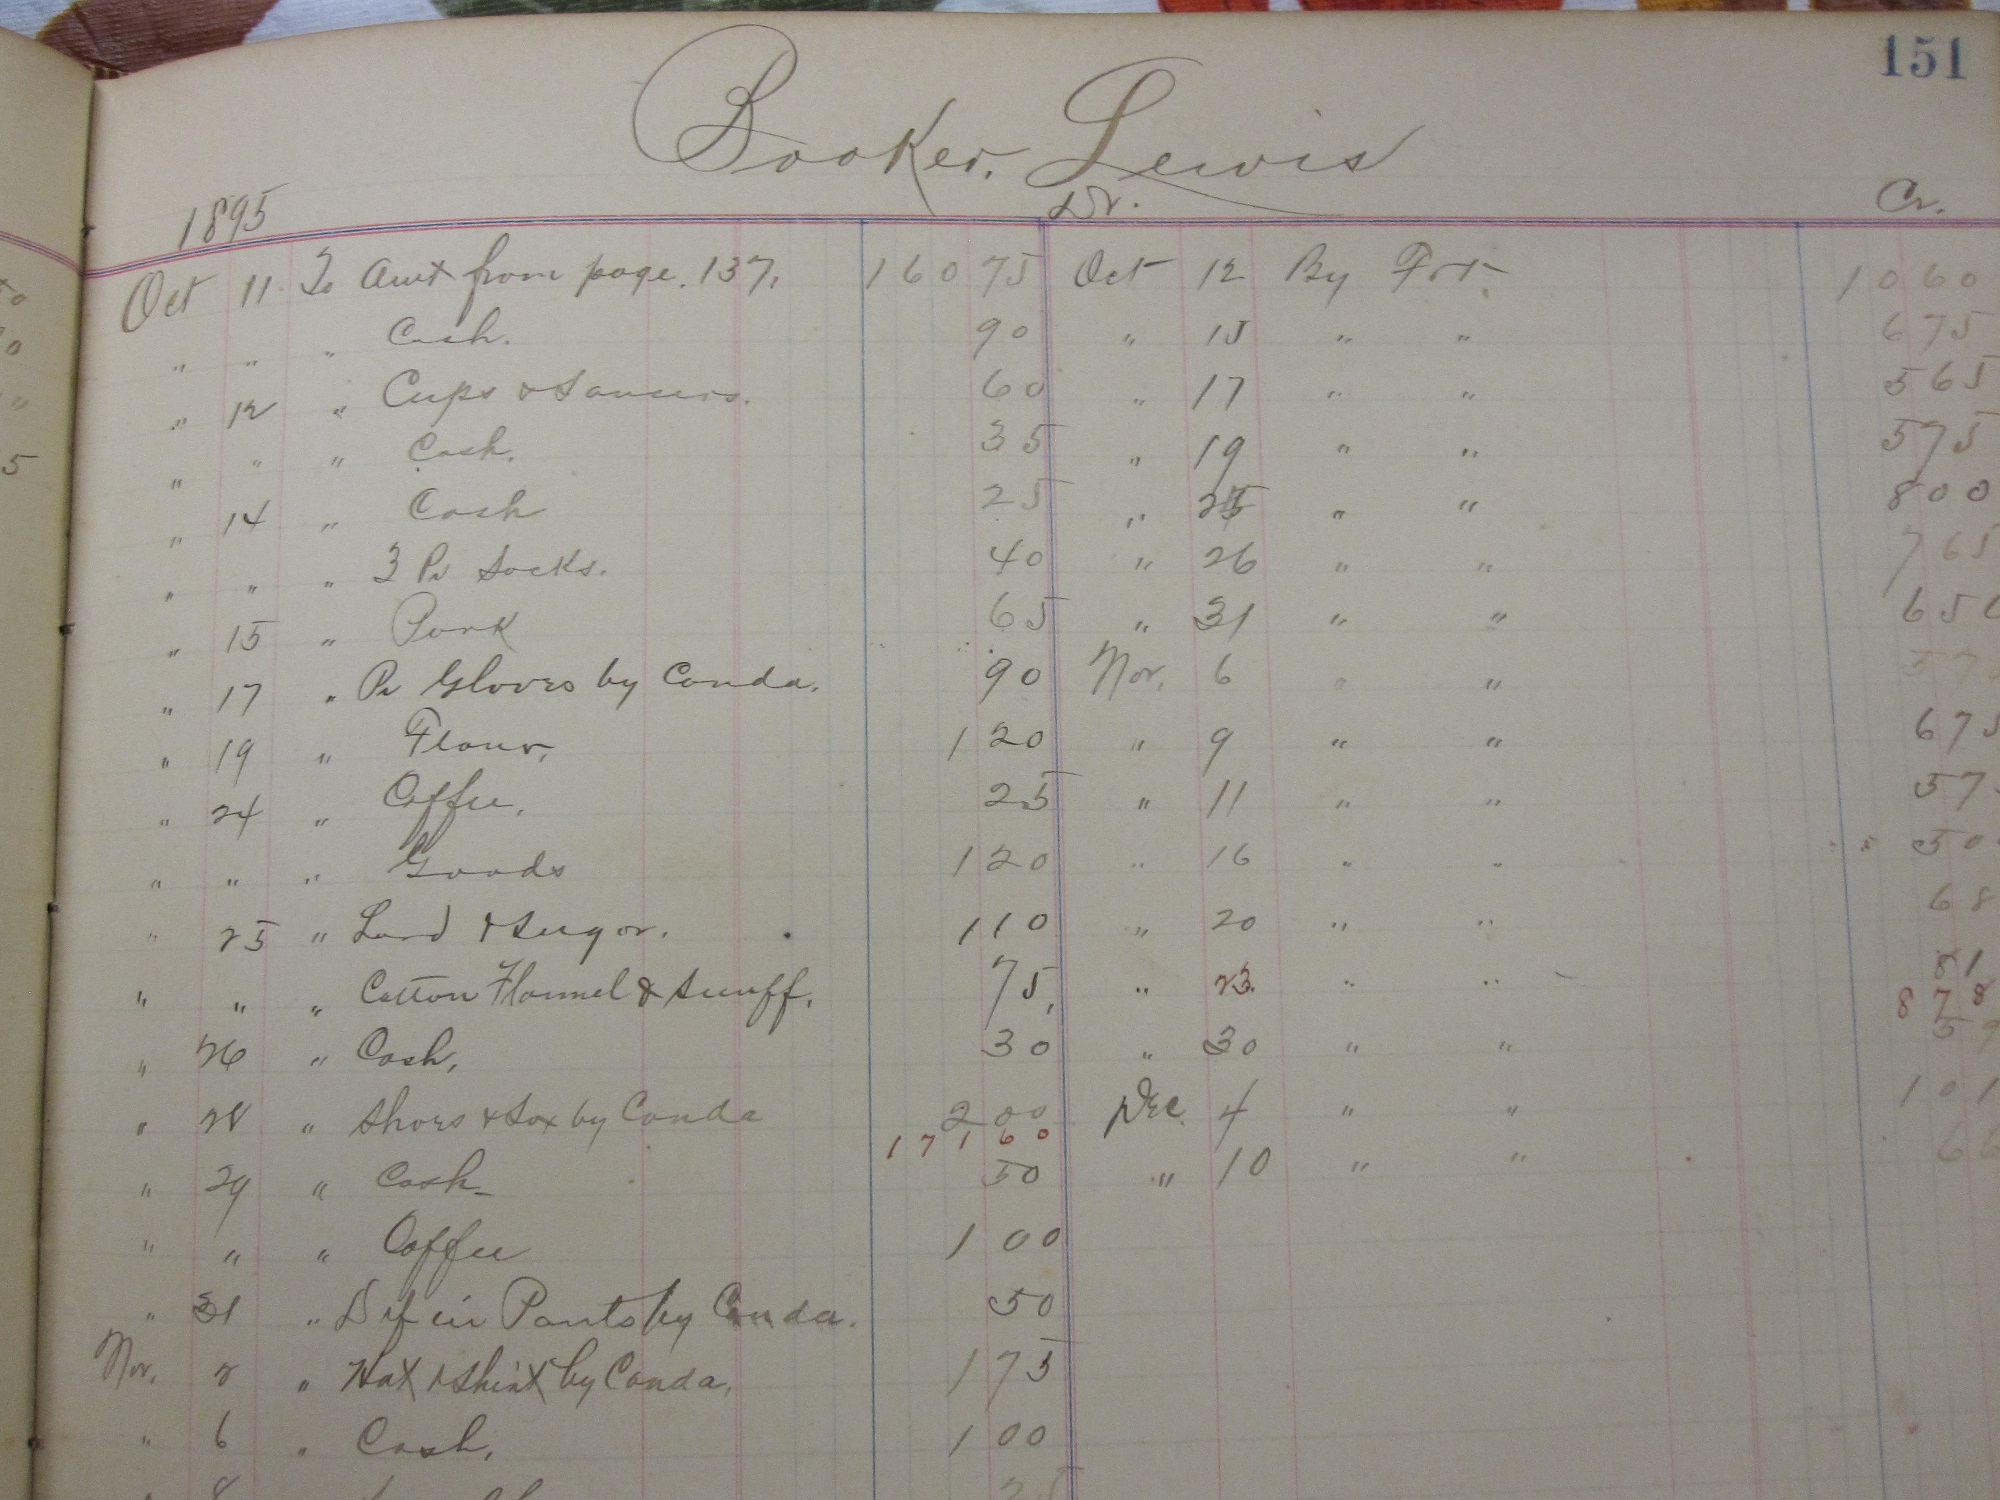 151
Booker, Lewis
1895 Dr. Cr.
Oct 11 To Amt from page. 137, 160 75 Oct 12 By Frt. 10 60
" " " Cash. 90 " 15 " " 6 75
" 12 " Cups & Saucers. 60 " 17 " " 5 65
" " " Cash. 35 " 19 " " 5 75
" 14 " Cash 25 " 25 " " 8 00
" " " 3 Pr Socks. 40 " 26 " " 7 65
" 15 " Pork 65 " 31 " " 6 50
" 17 " Pr Gloves by Conda. 90 Nov. 6 " " 5 75
" 19 " Flour, 1 20 " 9 " " 6 75
" 24 " Coffee, 25 " 11 " " 5 7
" " " Goods 1 20 " 16 " " 5 0
" 25 " Lard & Sugar. 1 10 " 20 " " 6 8
" " " Cotton Flannel & Snuff. 75, " 23. " " 81
8 7 8
" 26 " Cash, 30 " 30 " " 5 9
" 28 " Shoes & Sox by Conda 2 00 Dec. 4 " " 10 1
171 60
" 29 " Cash 50 " 10 " " 6 6
" " " Coffee 1 00
" 31 " Dif in Pants by Conda. 50
Nov. 2 " Hat & Shirt by Conda, 1 75
" 6 " Cash, 1 00
" 8 25